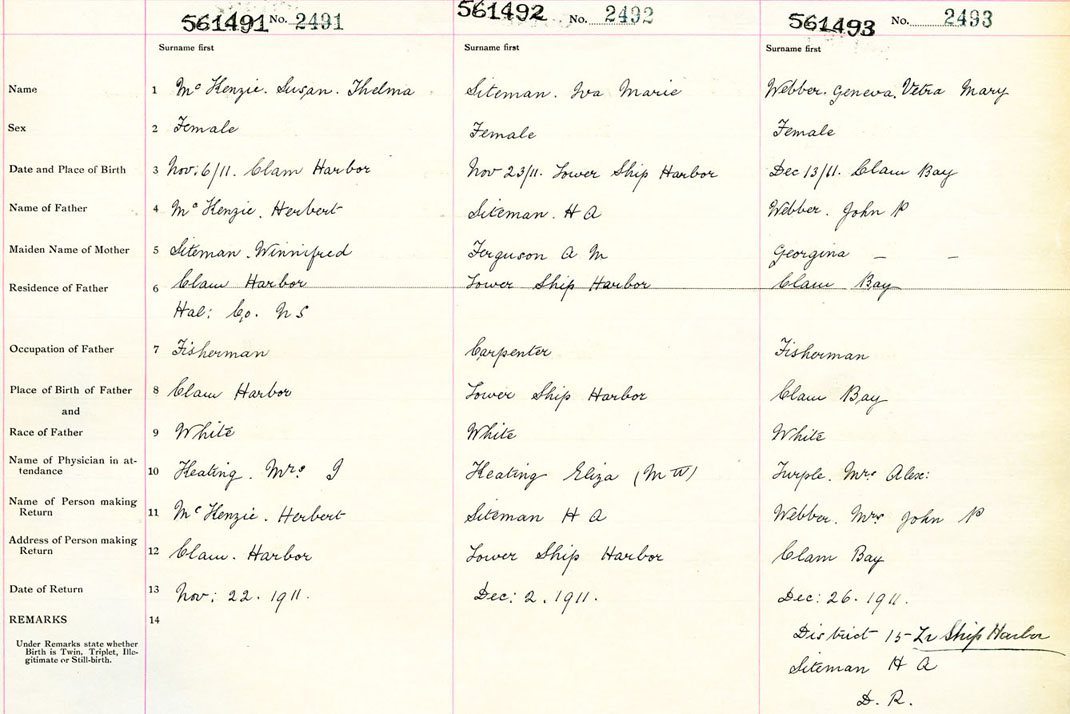 561491 No. 2491 561492 No. 2492 561493 No. 2493
Surname first Surname first Surname first
Name 1 Mc Kenzie. Susan. Thelma Siteman. Iva Marie Webber. Geneva. Vetra Mary
Sex 2 Female Female Female
Date and Place of Birth 3 Nov: 6/11. Clam Harbor Nov 23/11. Lower Ship Harbor Dec 13/11. Clam Bay
Name of Father 4 Mc Kenzie. Herbert Siteman. H A Webber. John P
Maiden Name of Mother 5 Siteman. Winnifred Ferguson A M Georgina — —
Residence of Father 6 Clam Harbor Lower Ship Harbor Clam Bay
Hal: Co. N S
Occupation of Father 7 Fisherman Carpenter Fisherman
Place of Birth of Father 8 Clam Harbor Lower Ship Harbor Clam Bay
and
Race of Father 9 White White White
Name of Physician in at-
tendance 10 Keating. Mrs. Keating Eliza (M W) Turple. Mrs Alex:
Name of Person making
Return 11 Mc Kenzie. Herbert Siteman H A Webber. Mrs John P
Address of Person making
Return 12 Clam. Harbor Lower Ship Harbor Clam Bay
Date of Return 13 Nov: 22. 1911. Dec: 2. 1911. Dec: 26. 1911.
REMARKS 14
Under Remarks state whether
Birth is Twin, Triplet, Ille-
gitimate or Still-birth.
District 15- Lr Ship Harbor
Siteman H A
D. R.